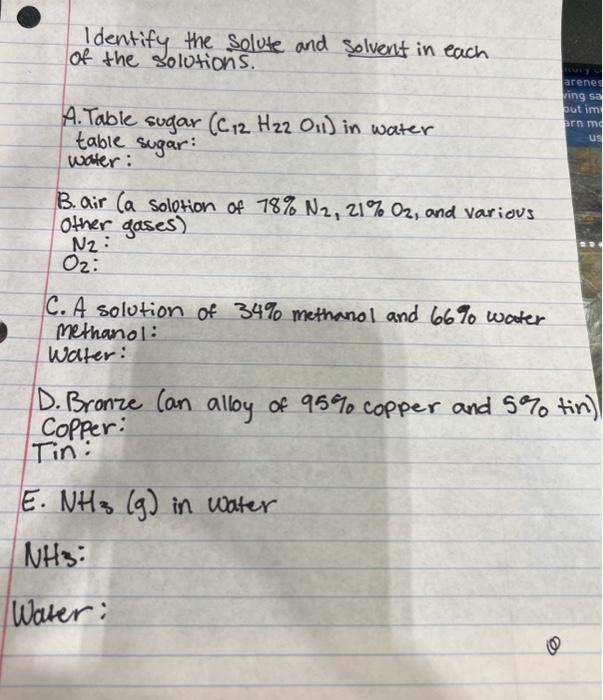 Identify the solute and solvent in each
of the solutions.
A. Table sugar (C12 H22 O11) in water
table sugar:
water:
B. air (a solotion of 78% N2, 21% O2, and various
other gases)
N2:
O2:
C. A solution of 34% methanol and 66% water
methanol:
Water:
D. Bronze (an alloy of 95% copper and 5% tin)
Copper:
Tin:
E. NH3 (g) in water
NH3:
Water:
arenes
ving sa
out im
arn mo
us